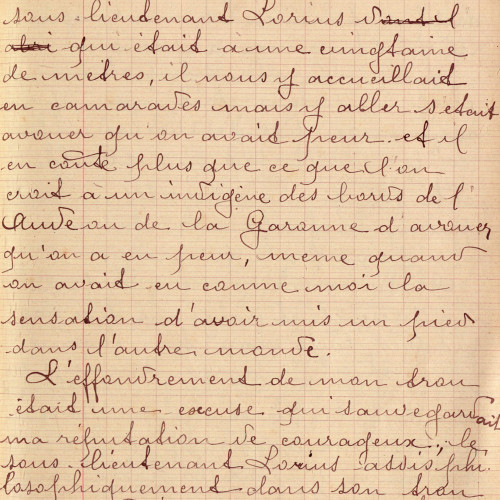 sous-lieutenant Lorius
abri qui était à une vingtaine
de mètres, il nous y accueillait
en camarades mais y aller s'était
avouer qu'on avait peur et il
en coûte plus que ce que l'on
croit à un indigène des bords de l'
Aude ou de la Garonne d'avouer
qu'on a eu peur, même quand
on avait eu comme moi la
sensation d'avoir mis un pied
dans l'autre monde.
L'effondrement de mon trou
était une excuse qui sauvegardait
ma réputation de courageux, le
sous-lieutenant Lorius assis phi-
losophiquement dans son trou